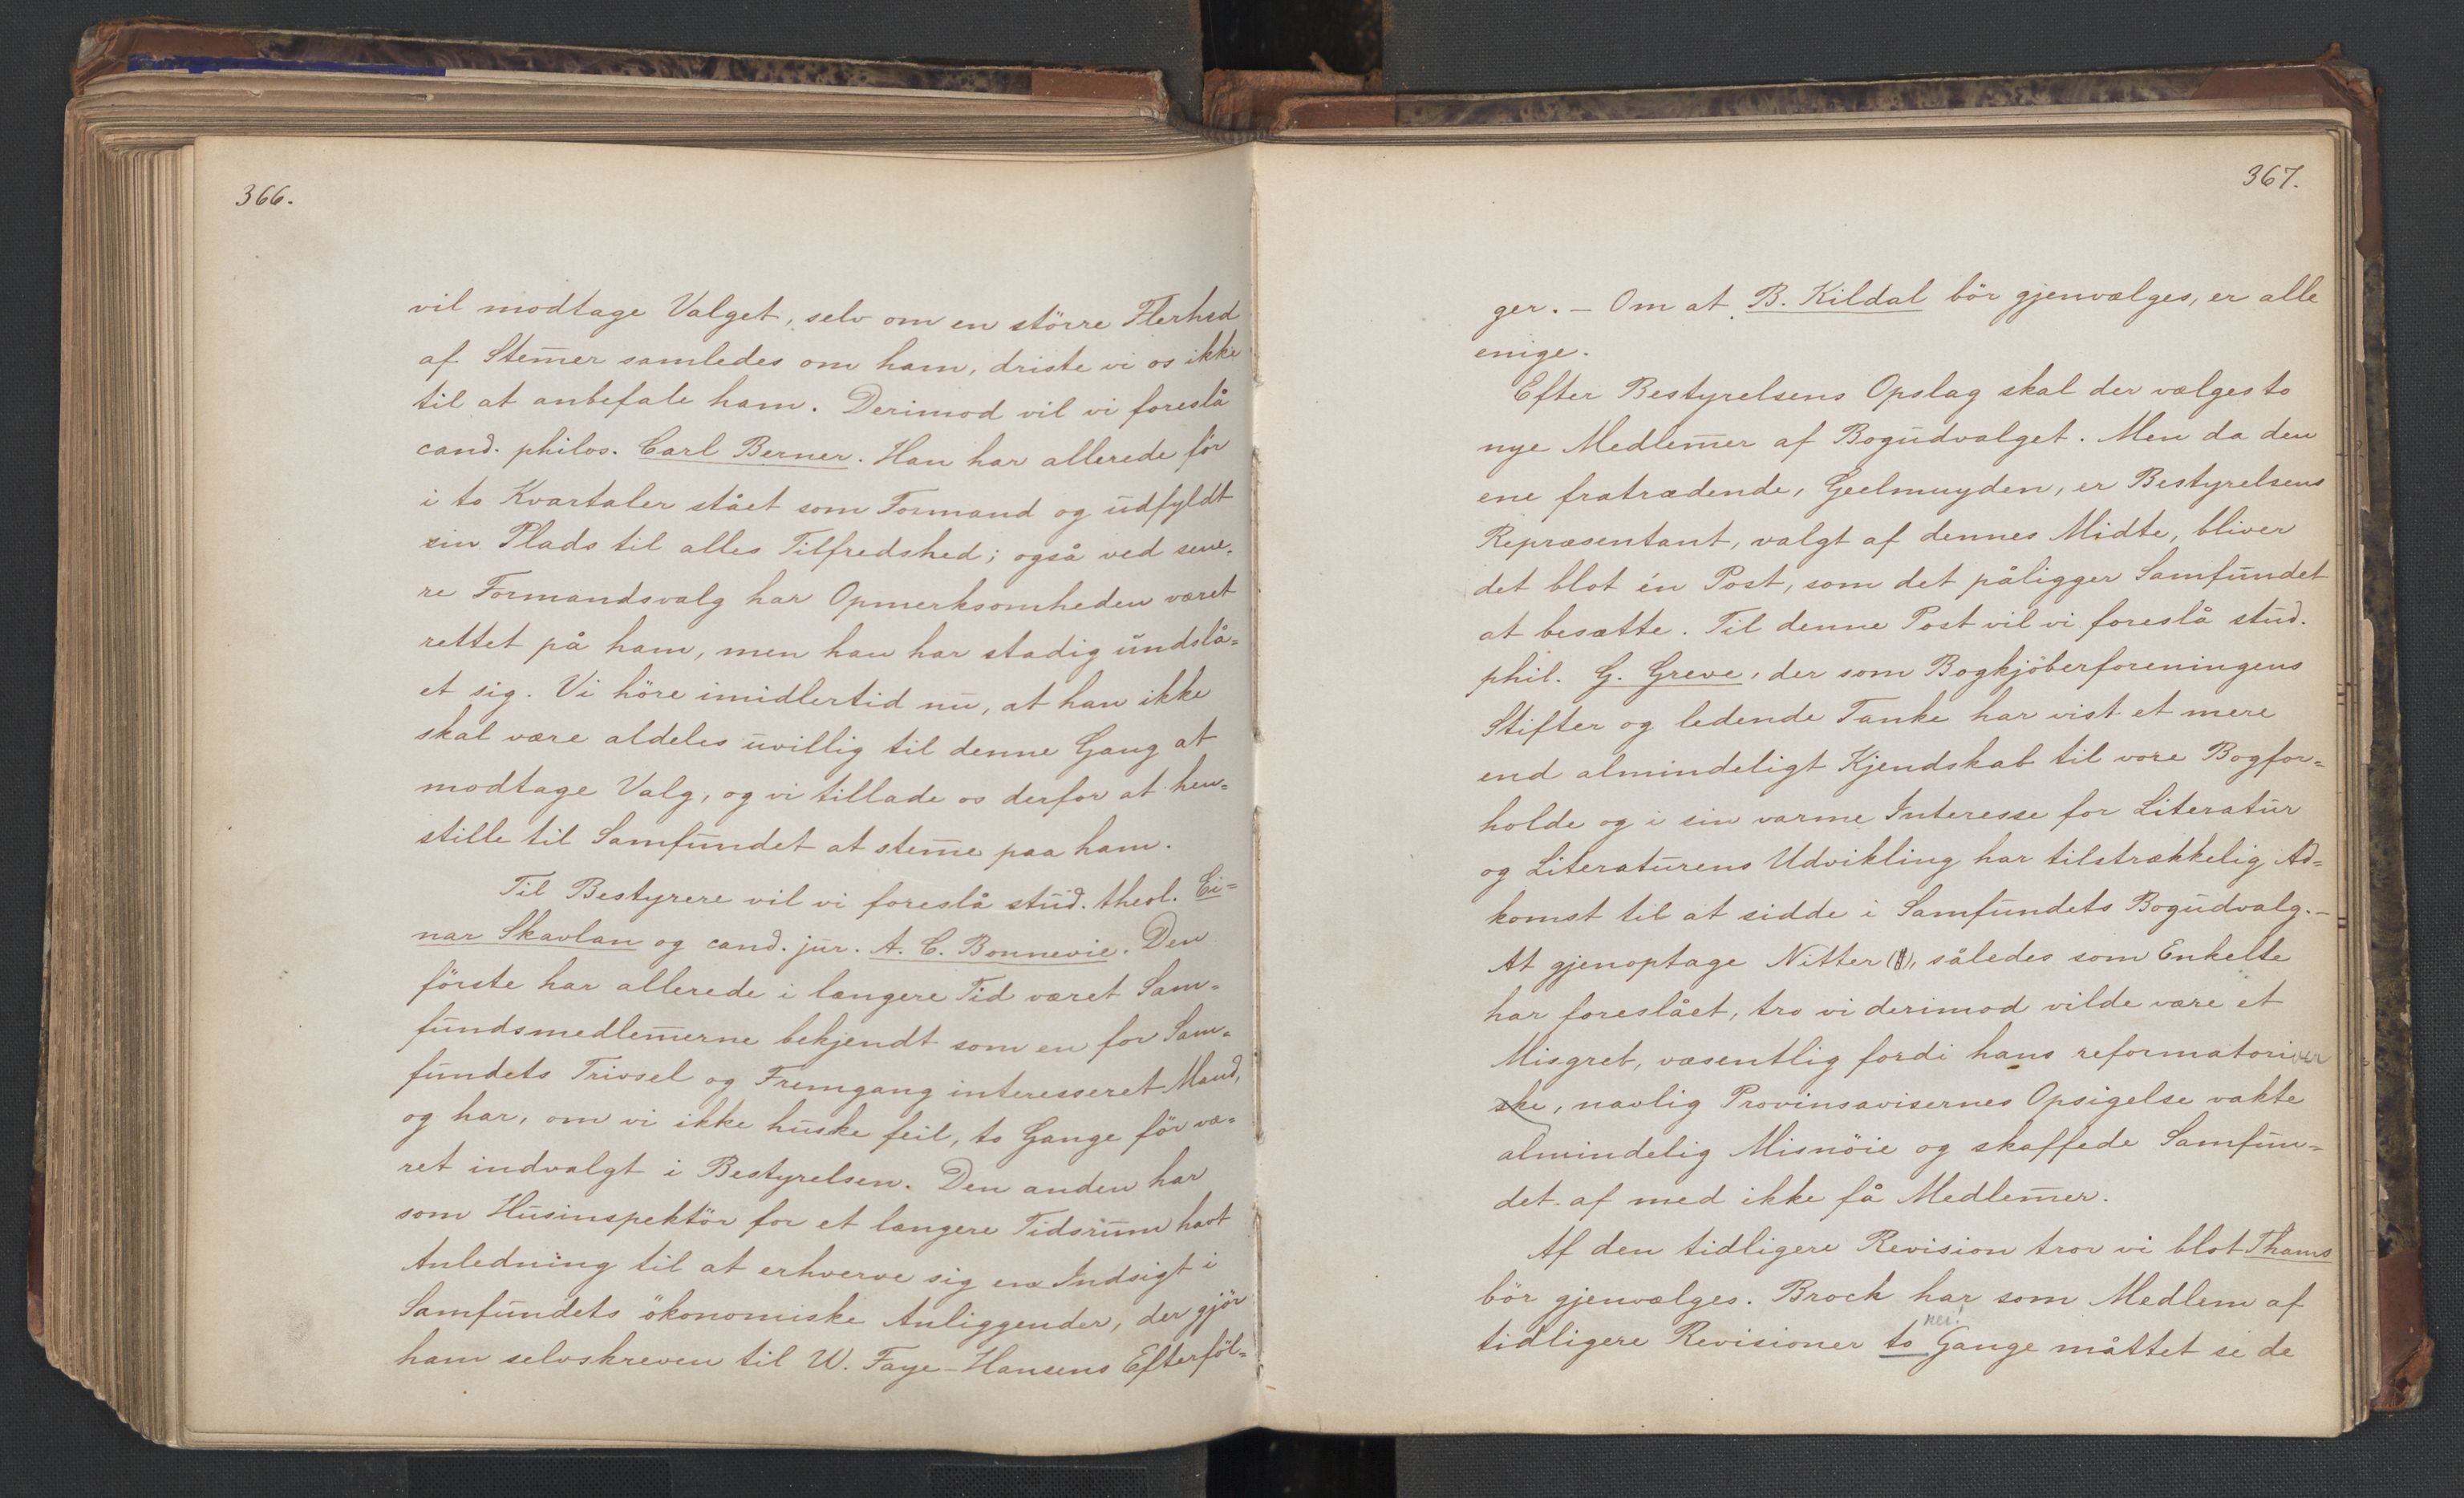 366.
vil modtage Valget, selv om en större Flerhed
af Stem̄er samledes om ham, driste vi os ikke
til at anbefale ham. Derimod vil vi foreslå
cand. philos. Carl Berner. Han har allerede för
i to Kvartaler stået som Formand og udfyldt
sin Plads til alles Tilfredshed; også ved sene-
re Formandsvalg har Opmerksomheden været
rettet på ham, men han har stadig undslå=
et sig. Vi höre imidlertid nu, at han ikke
skal være aldeles uvillig til denne Gang at
modtage Valg, og vi tillade os derfor at hen=
stille til Samfundet at stem̄e paa ham.
Til Bestyrere vil vi foreslå stud. theol. Ei=
nar Skavlan og cand. jur. A. C. Bonnevie. Den
förste har allerede i længere Tid været Sam=
fundsmedlem̄erne bekjendt som en for Sam=
fundets Trivsel og Fremgang interesseret Mand,
og har, om vi ikke huske feil, to Gange för væ=
ret indvalgt i Bestyrelsen. Den anden har
som Husinspektör for et længere Tidsrum havt
Anledning til at erhverve sig en Indsigt i
Samfundets ökonomiske Anliggender, der gjör
ham selvskreven til W. Faye-Hansens Efterföl=
367.
ger. – Om at B. Kildal bör gjenvælges, er alle
enige.
Efter Bestyrelsens Opslag skal der vælges to
nye Medlem̄er af Bogudvalget. Men da den
ene fratrædende, Geelmuyden, er Bestyrelsens
Repræsentant, valgt af dennes Midte, bliver
det blot én Post, som det påligger Samfundet
at besætte. Til denne Post vil vi foreslå stud.
phil. G. Greve, der som Bogkjöberforeningens
Stifter og ledende Tanke har vist et mere
end almindeligt Kjendskab til vore Bogfor=
holde og i sin varme Interesse for Literatur
og Literaturens Udvikling har tilstrækkelig Ad=
komst til at sidde i Samfundets Bogudvalg. –
At gjenoptage Nitter, således som Enkelte
har foreslået, tro vi derimod vilde være et
Misgreb, væsentlig fordi hans reformatori
ske, navlig Provinsavisernes Opsigelse vakte
almindelig Misnöie og skaffede Samfun=
det af med ikke få Medlem̄er.
Af den tidligere Revision tror vi blot Thams
bör gjenvælges. Brock har som Medlem af
nei!
tidligere Revisioner to Gange måttet se de